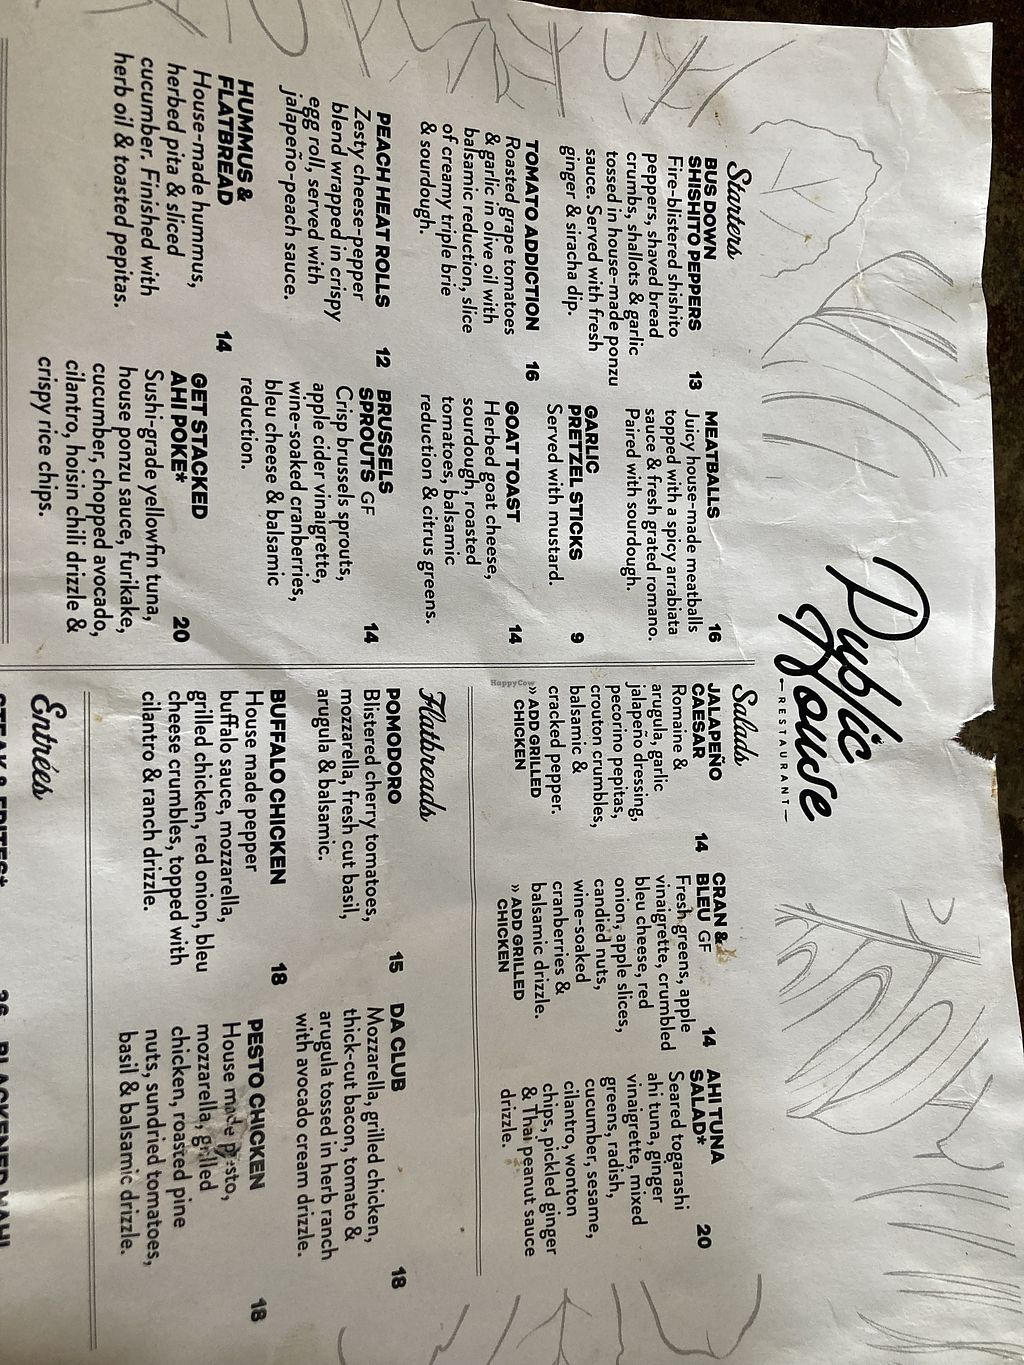 Public
House
—RESTAURANT—
Starters
BUS DOWN
SHISHITO PEPPERS 13
Fire-blistered shishito
peppers, shaved bread
crumbs, shallots & garlic
tossed in house-made ponzu
sauce. Served with fresh
ginger & siracha dip.
TOMATO ADDICTION 16
Roasted grape tomatoes
& garlic in olive oil with
balsamic reduction, slice
of creamy triple brie
& sourdough.
PEACH HEAT ROLLS 12
Zesty cheese-pepper
blend wrapped in crispy
egg roll, served with
jalapeño-peach sauce.
HUMMUS &
FLATBREAD 14
House-made hummus,
herbed pita & sliced
cucumber. Finished with
herb oil & toasted pepitas.
MEATBALLS 16
Juicy house-made meatballs
topped with a spicy arrabiata
sauce & fresh grated romano.
Paired with sourdough.
GARLIC
PRETZEL STICKS 9
Served with mustard.
GOAT TOAST 14
Herbed goat cheese,
sourdough, roasted
tomatoes, balsamic
reduction & citrus greens.
BRUSSELS
SPROUTS GF 14
Crisp brussels sprouts,
apple cider vinaigrette,
wine-soaked cranberries,
bleu cheese & balsamic
reduction.
GET STACKED
AHI POKE* 20
Sushi-grade yellowfin tuna,
house ponzu sauce, furikake,
cucumber, chopped avocado,
cilantro, hoisin chili drizzle &
crispy rice chips.
Salads
JALAPEÑO
CAESAR 14
Romaine &
arugula, garlic
jalapeño dressing,
pecorino pepitas,
crouton crumbles,
balsamic &
cracked pepper.
» ADD GRILLED
CHICKEN
CRAN &
BLEU GF 14
Fresh greens, apple
vinaigrette, crumbled
bleu cheese, red
onion, apple slices,
candied nuts,
wine-soaked
cranberries &
balsamic drizzle.
» ADD GRILLED
CHICKEN
AHI TUNA
SALAD* 20
Seared togarashi
ahi tuna, ginger
vinaigrette, mixed
greens, radish,
cucumber, sesame,
cilantro, wonton
chips, pickled ginger
& Thai peanut sauce
drizzle.
Flatbreads
POMODORO 15
Blistered cherry tomatoes,
mozzarella, fresh cut basil,
arugula & balsamic.
BUFFALO CHICKEN 18
House made pepper
buffalo sauce, mozzarella,
grilled chicken, red onion, bleu
cheese crumbles, topped with
cilantro & ranch drizzle.
DA CLUB 18
Mozzarella, grilled chicken,
thick-cut bacon, tomato &
arugula tossed in herb ranch
with avocado cream drizzle.
PESTO CHICKEN 18
House made pesto,
mozzarella, grilled
chicken, roasted pine
nuts, sundried tomatoes,
basil & balsamic drizzle.
Entrées
STEAK & FRITES* 36
BLACKENED MAHI
HappyCow